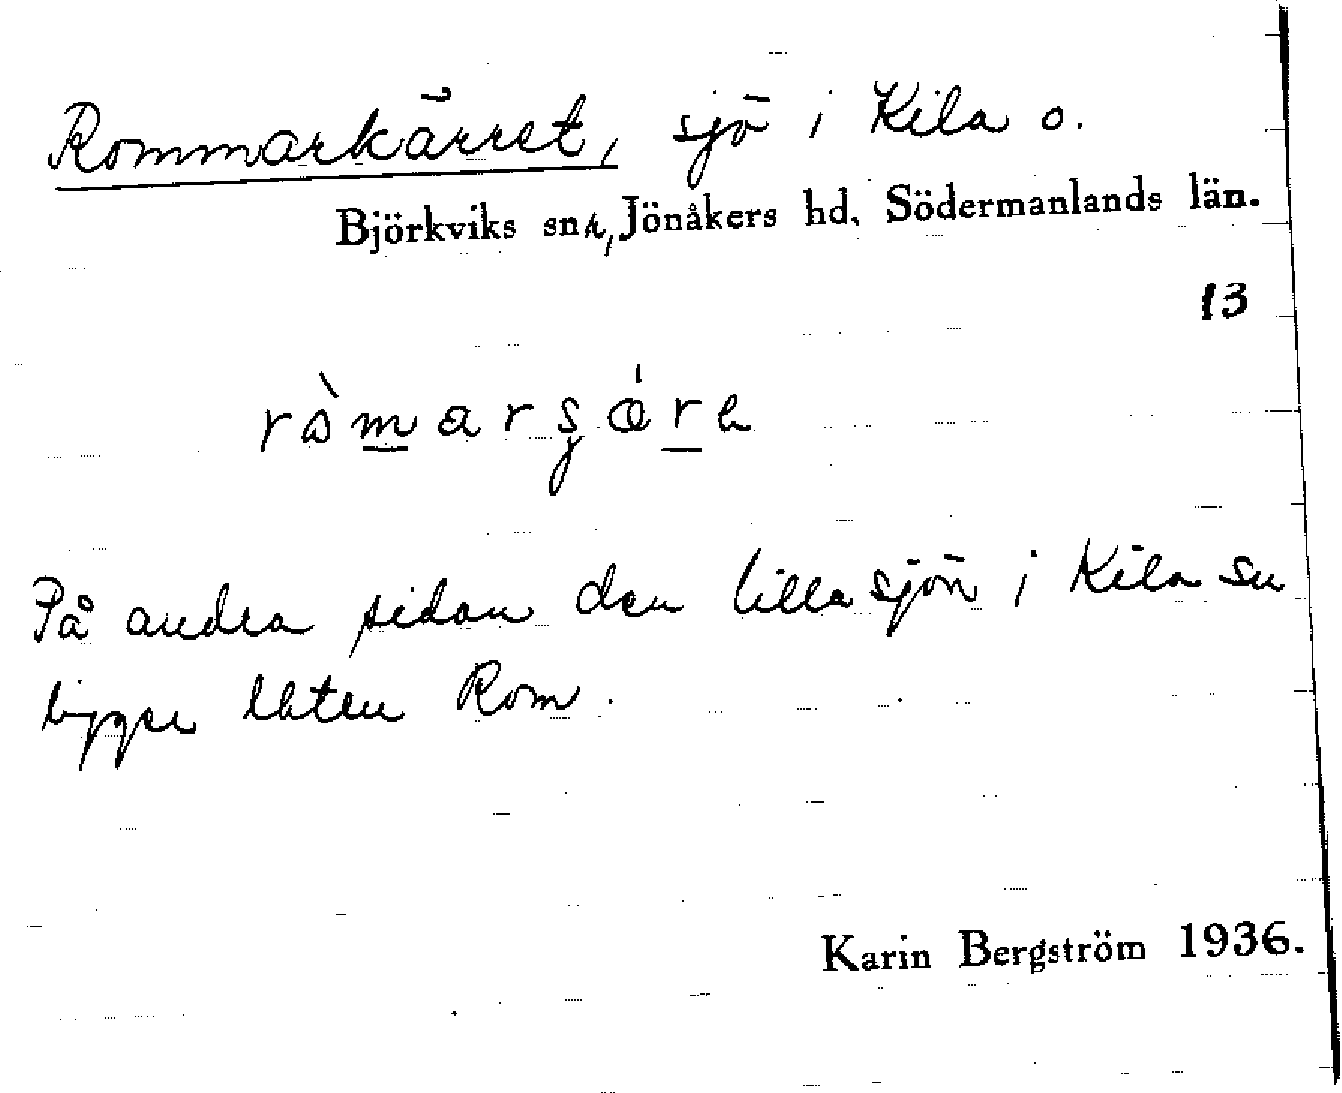 Rommarkärret, sjö i Kila o.
Björkviks snr, Jönåkers hd, Södermanlands län.
13
På andra sidan den lilla sjön i Kila sn
ligger Rom.
Karin Bergström 1936.